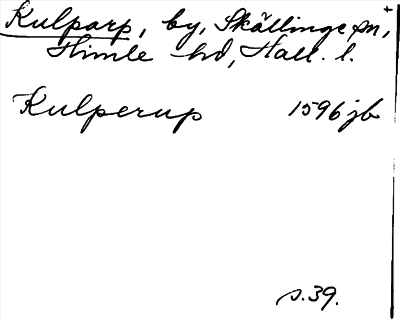 Kulparp, by, Skällinge sn,
Himle hd, Hall. l.
Kulperup 1596 jb
s. 39.